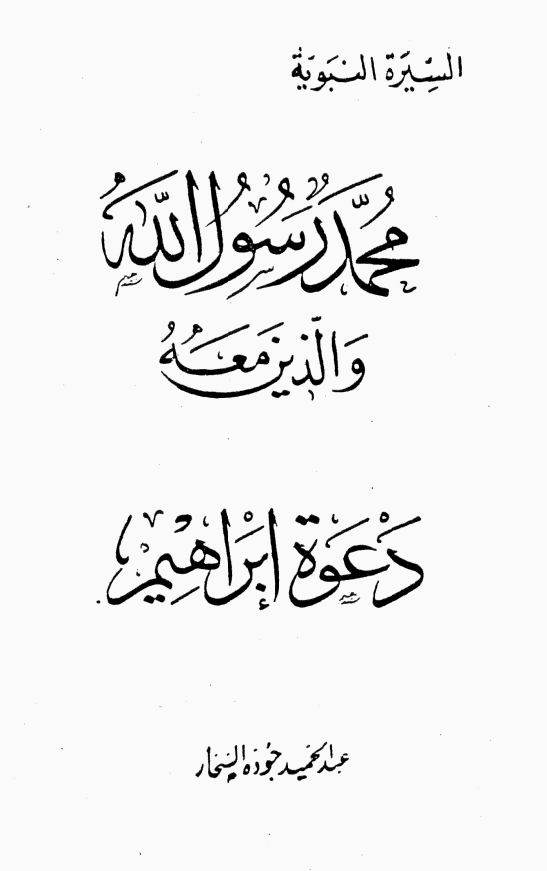 السِّيَرة النَبَوَية
مُحمَّد رَسُولُ اللهُ
وَالّذِينَ مَعَهُ
دَعْوَة إبْرَاهِيم
عبد الحميد جوده السحار